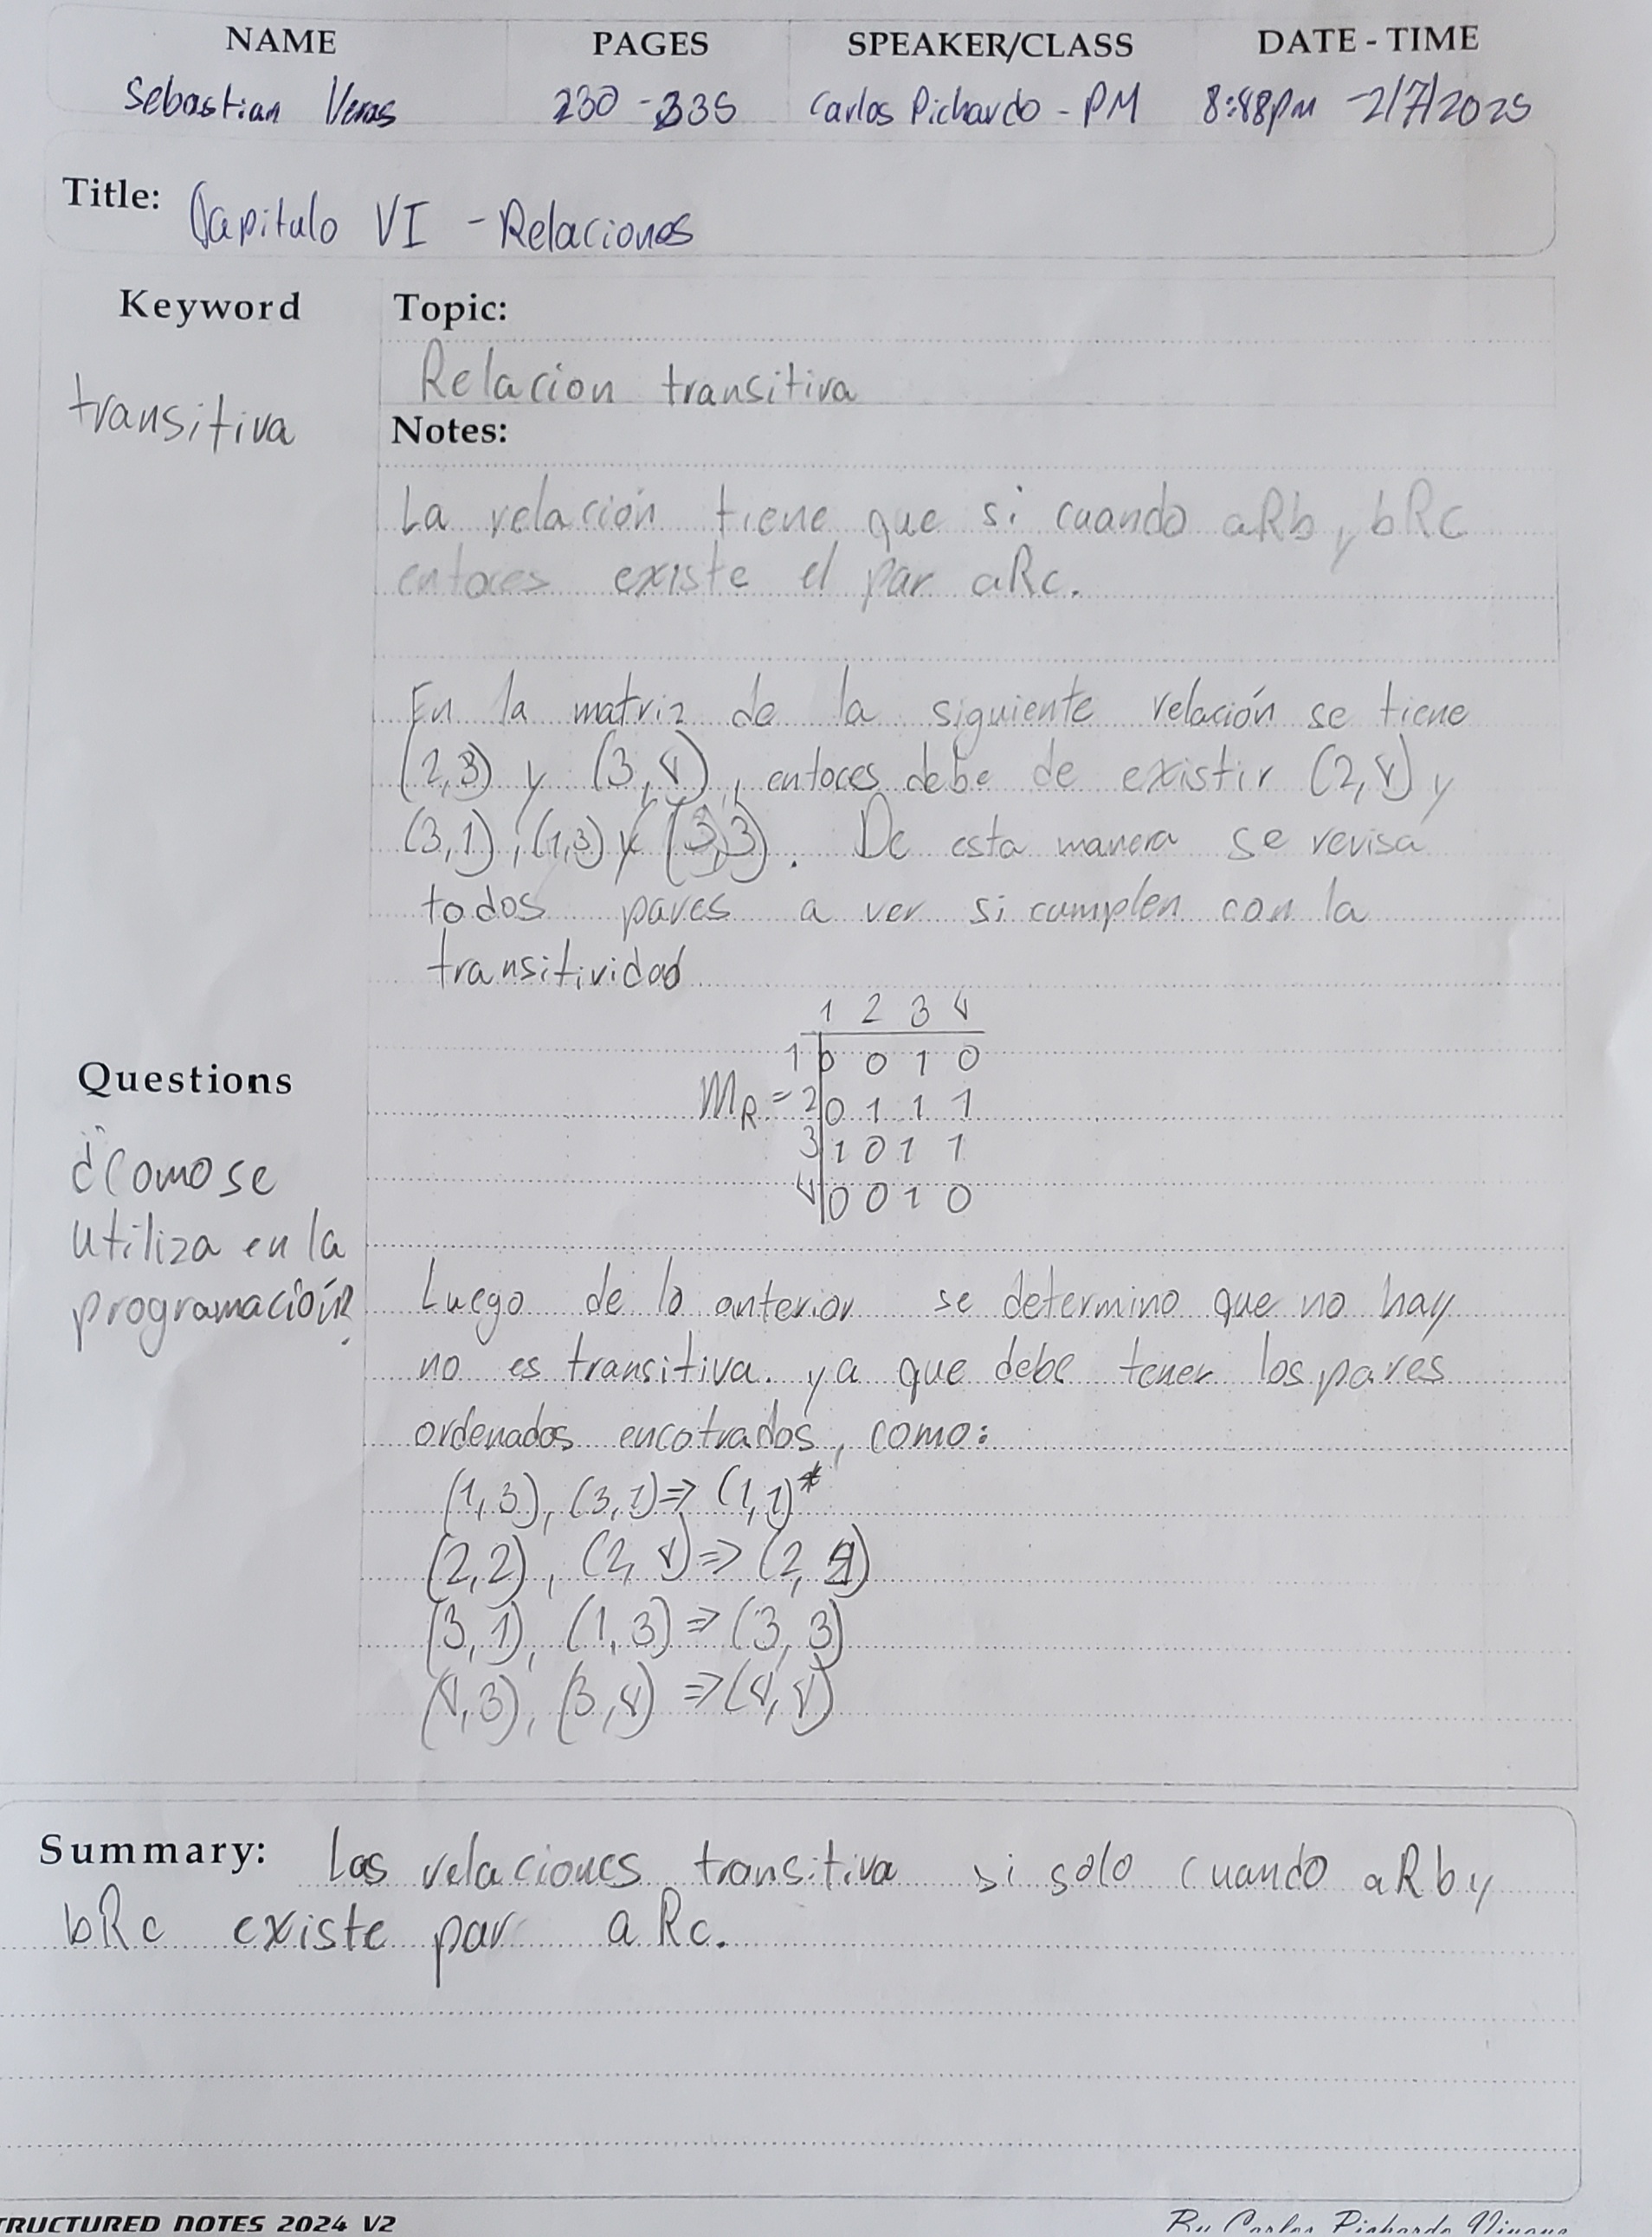 NAME PAGES SPEAKER/CLASS DATE - TIME
Sebastian Veras 230 - 335 Carlos Pichardo - PM 8:48pm - 2/7/2025
Title: Capitulo VI - Relaciones
Keyword
transitiva
Topic:
Relacion transitiva
Notes:
La relación tiene que si cuando aRb y bRc
entoces existe el par aRc.
En la matriz de la siguiente relación se tiene
(2,3) y (3,4), entoces debe de existir (2,4) y
(3,1), (1,3) y (3,3). De esta manera se revisa
todos pares a ver si cumplen con la
transitividad
1 2 3 4
1 0 0 1 0
MR = 2 0 1 1 1
3 1 0 1 1
4 0 0 1 0
Questions
¿Como se
utiliza en la
programación?
Luego de lo anterior se determino que no hay
no es transitiva. ya que debe tener los pares
ordenados encotrados, como:
(1,3), (3,1) => (1,1)*
(2,2), (2,4) => (2,4)
(3,1), (1,3) => (3,3)
(4,3), (3,4) => (4,4)
Summary: Las relaciones transitiva si solo cuando aRb y
bRc existe par aRc.
TRUCTURED NOTES 2024 V2
By Carlos Pichardo